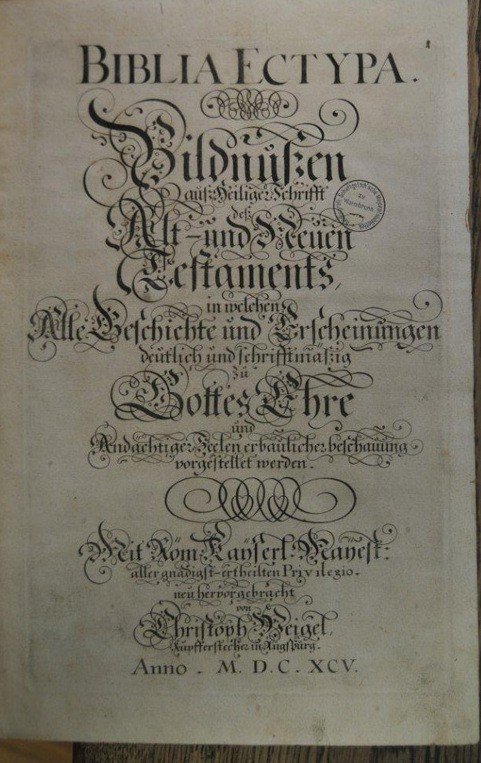 BIBLIA ECTYPA.
Bildnüßen
auß Heiliger Schrifft
deß
Alt- und Neuen
Testaments,
in welchen
Alle Geschichte und Erscheinungen
deutlich und schrifftmäßig
zu
Gottes Ehre
und
Andächtiger Seelen erbaulicher beschauung
vorgestellet werden.
Mit Röm. Kayserl. Mayest:
aller gnädigst-ertheilten Privilegio.
neu hervorgebracht
von
Christoph Weigel,
Kupfferstecher in Augspurg.
Anno. M. D. C. XCV.